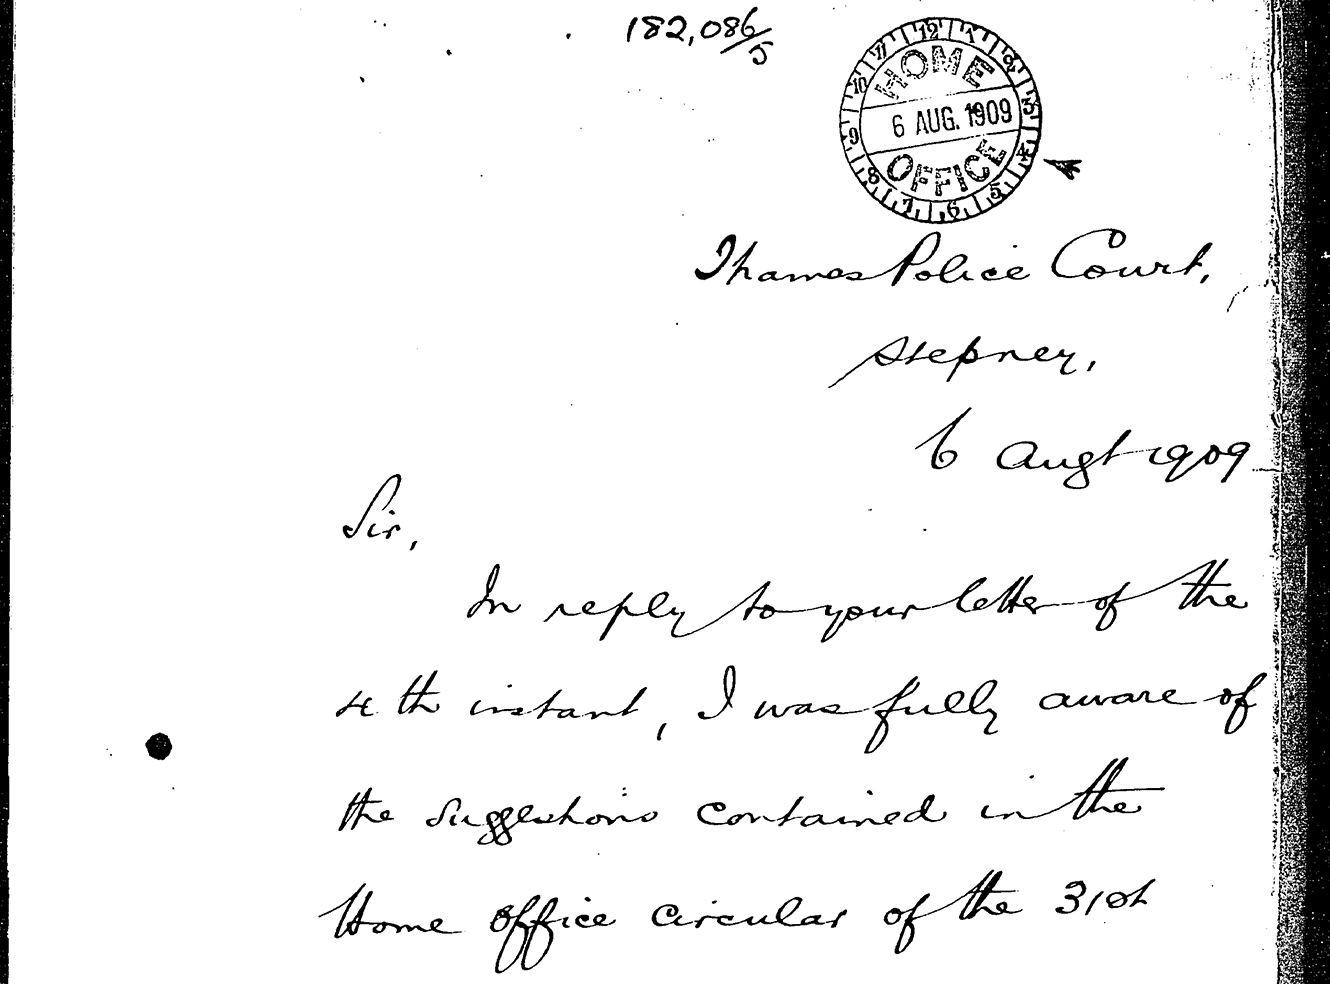 182,086/5
HOME
6 AUG. 1909
OFFICE
12 1 2 3 4 5 6 7 8 9 10 11
Thames Police Court,
Stepney,
6 Augt 1909
Sir,
In reply to your letter of the
4th instant, I was fully aware of
the suggestions contained in the
Home Office circular of the 31st